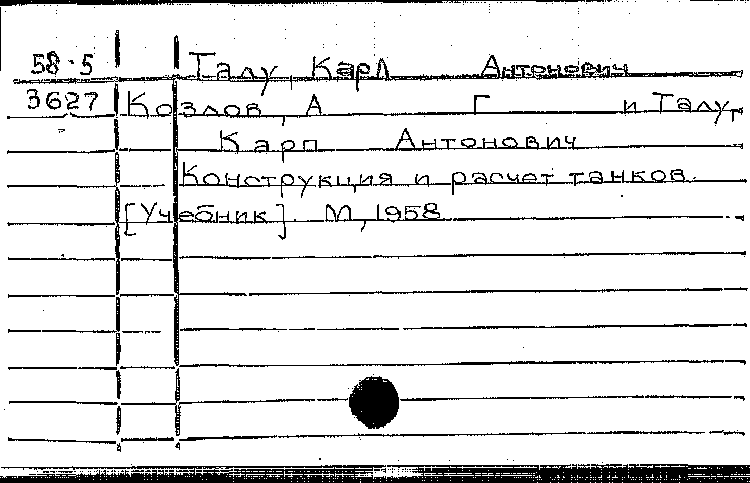 58.5 Талу, Карл Антонович
3627 Козлов, А Г и Талу,
Карл Антонович
Конструкция и расчет танков.
[Учебник]. М, 1958